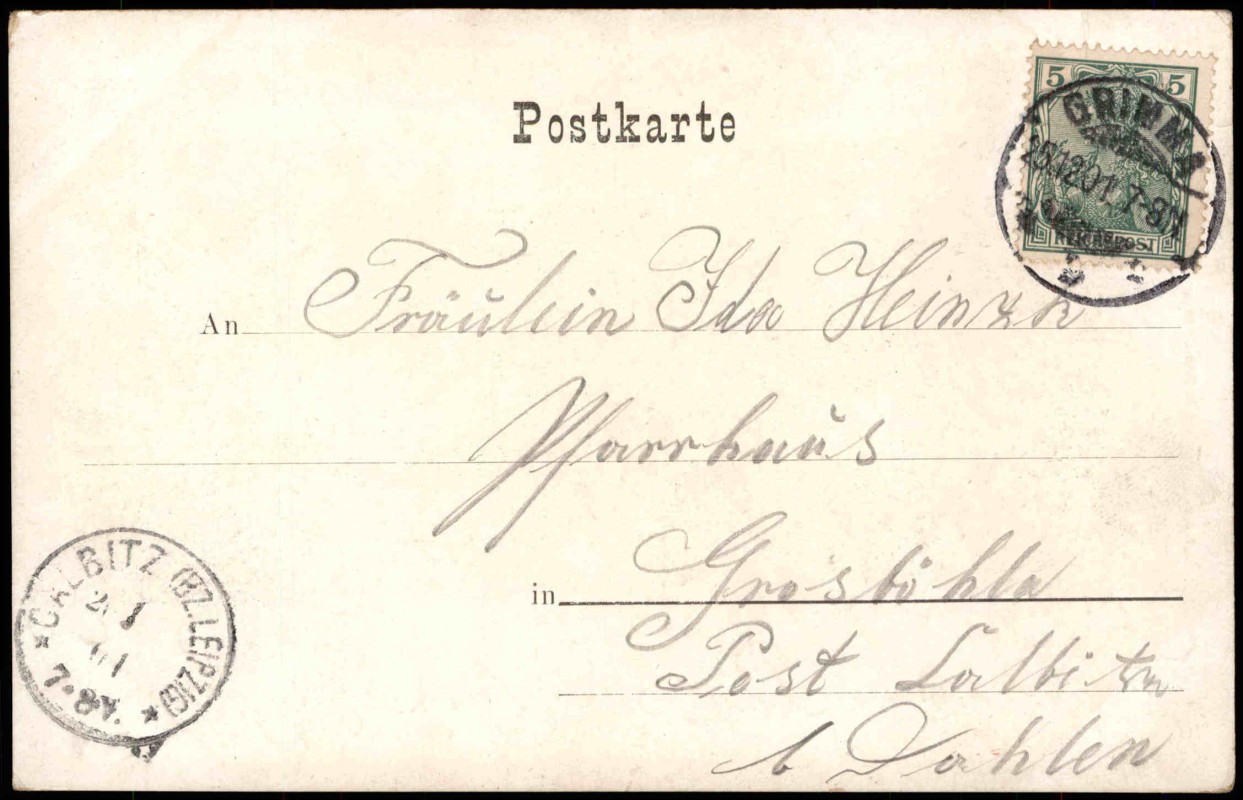 Postkarte
5 5
REICHSPOST
GRIMMA
25.12.01. 7-8N
An Fräulein Ida Heinzk
Pfarrhaus
in Grosböhla
Post Calbitz
b Dahlen
*CALBITZ (BZ.LEIPZIG)*
7-8V.